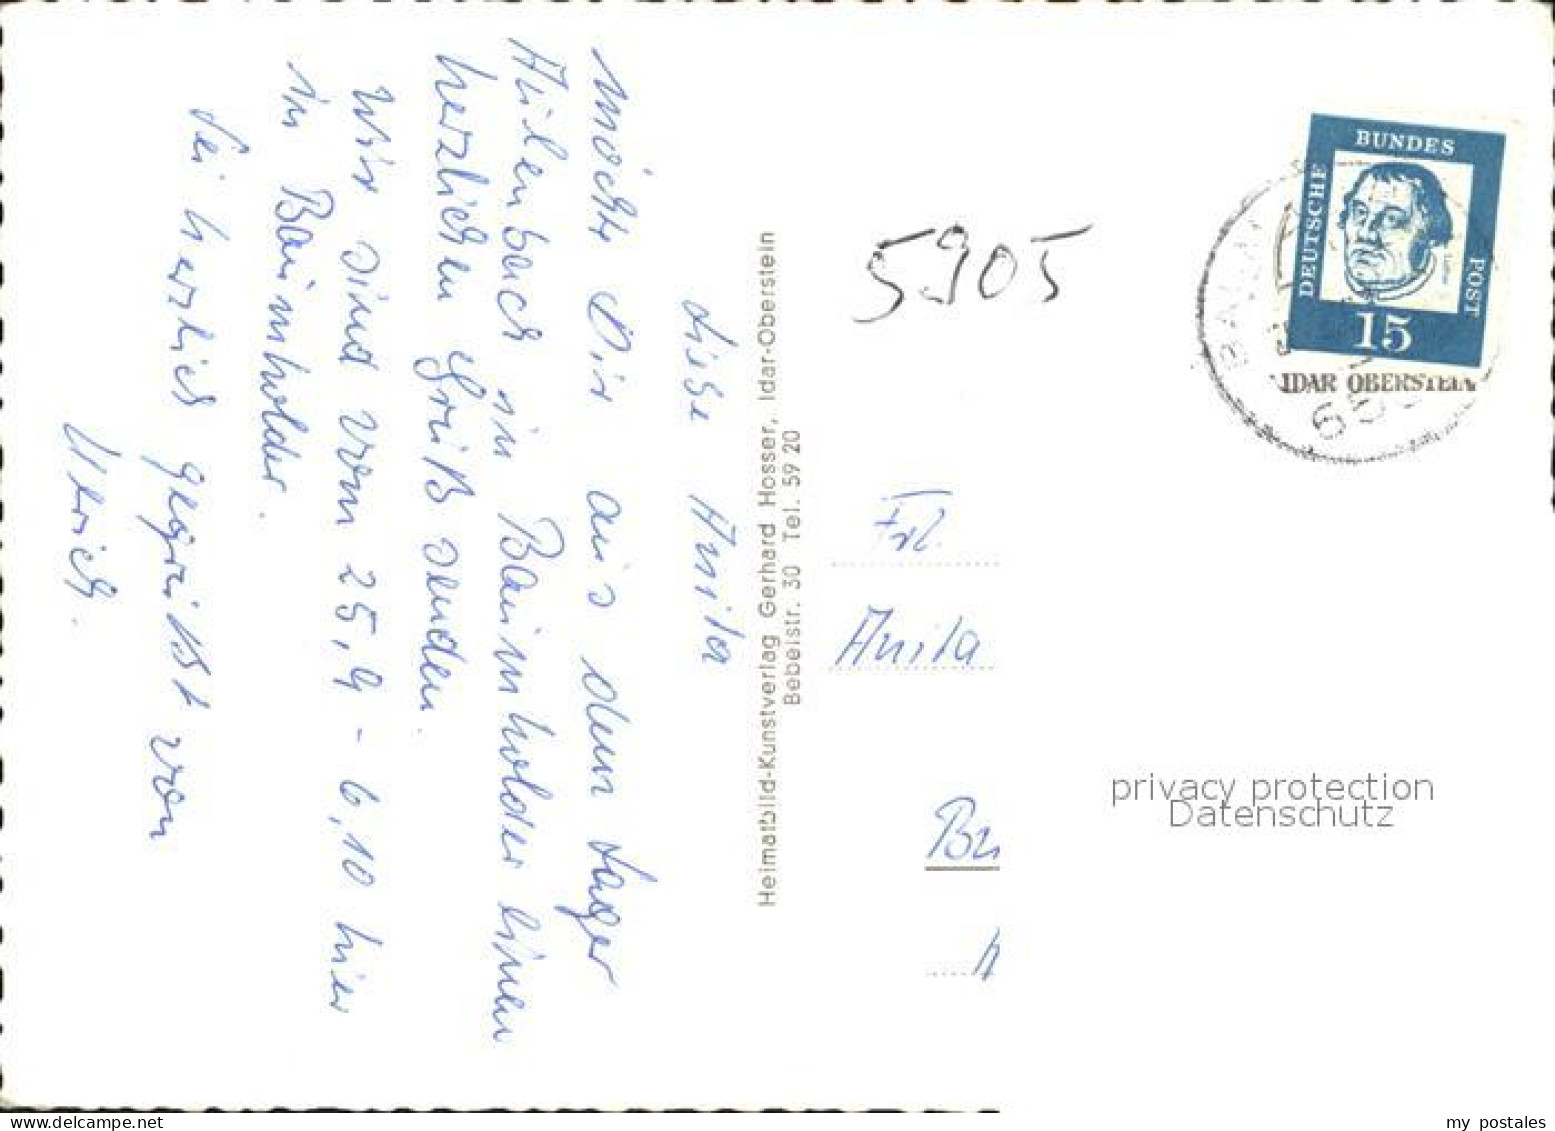 Liebe Anita
möchte Dir aus dem Lager
Aulenbach in Baumholder einen
herzlichen Gruß senden.
Wir sind vom 25,9 - 6,10 hier
in Baumholder.
Sei herzlich gegrüßt von
Ulrich.
Heimatbild-Kunstverlag Gerhard Hosser, Idar-Oberstein
Bebelstr. 30 Tel. 59 20
5905
DEUTSCHE
BUNDES
POST
Luther
15
IDAR OBERSTEIN
Frl.
Anita
privacy protection
Datenschutz
delcampe.net
my_postales